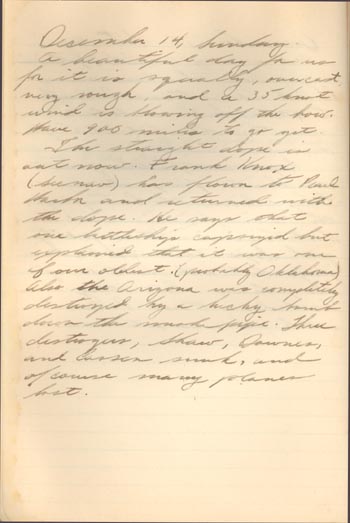 December 14, Sunday.
A beautiful day for us
for it is squally, overcast,
very rough, and a 35 knot
wind is blowing off the bow.
Have 900 miles to go yet.
The straight dope is
out now. Frank Knox
(Sec nav) has flown to Pearl
Harbor and returned with
the dope. He says that
one battleship capsized but
explained that it was one
of our oldest. (probably Oklahoma)
Also the Arizona was completely
destroyed by a lucky bomb
down the smoke pipe. Three
destroyers, Shaw, Downes,
and Cassin sunk, and
of course many planes
lost.